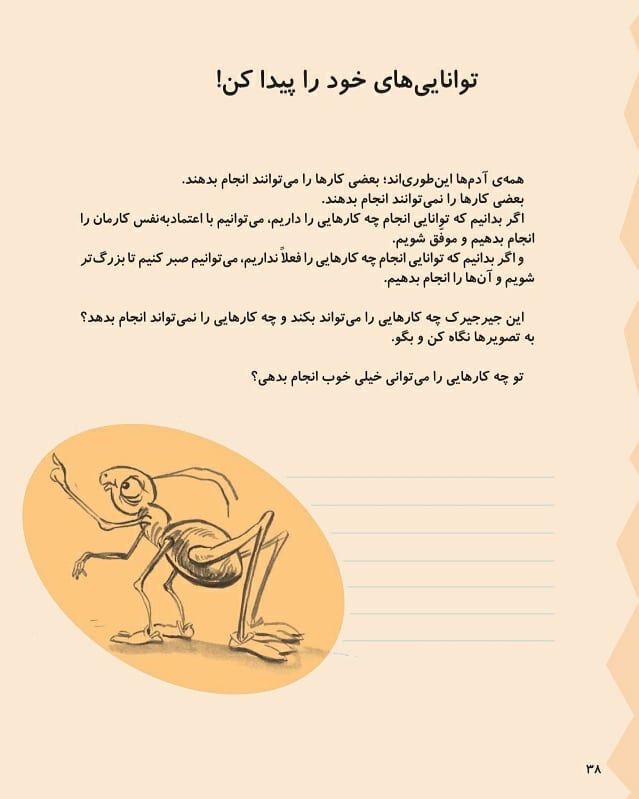 توانایی‌های خود را پیدا کن!
همه‌ی آدم‌ها این‌طوری‌اند؛ بعضی کارها را می‌توانند انجام بدهند.
بعضی کارها را نمی‌توانند انجام بدهند.
اگر بدانیم که توانایی انجام چه کارهایی را داریم، می‌توانیم با اعتمادبه‌نفس کارمان را
انجام بدهیم و موفّق شویم.
و اگر بدانیم که توانایی انجام چه کارهایی را فعلاً نداریم، می‌توانیم صبر کنیم تا بزرگ‌تر
شویم و آن‌ها را انجام بدهیم.
این جیرجیرک چه کارهایی را می‌تواند بکند و چه کارهایی را نمی‌تواند انجام بدهد؟
به تصویرها نگاه کن و بگو.
تو چه کارهایی را می‌توانی خیلی خوب انجام بدهی؟
۳۸